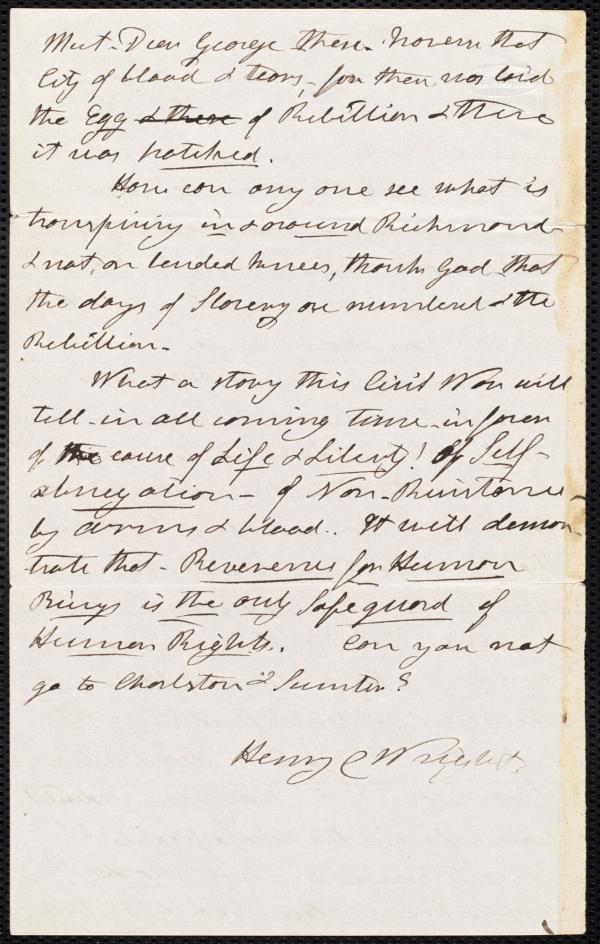 Meet Dear George there. Govern that
City of blood & tears, for then was laid
the Egg & there of Rebillion & there
it was hatched.
How can any one see what is
transpiring in & around Richmond
& not, on bended knees, thank God that
the days of Slavery are numbered & the
Rebillion.
What a story this Civil War will
tell in all coming time in favor
of the cause of Life & Liberty! Of Self-
abnegation - of Non-Resistance
by arms & blood. It will demon
trate that - Reverence for Human
Beings is the only Safeguard of
Human Rights. Can you not
go to Charlston & Sumter?
Henry C Wright.